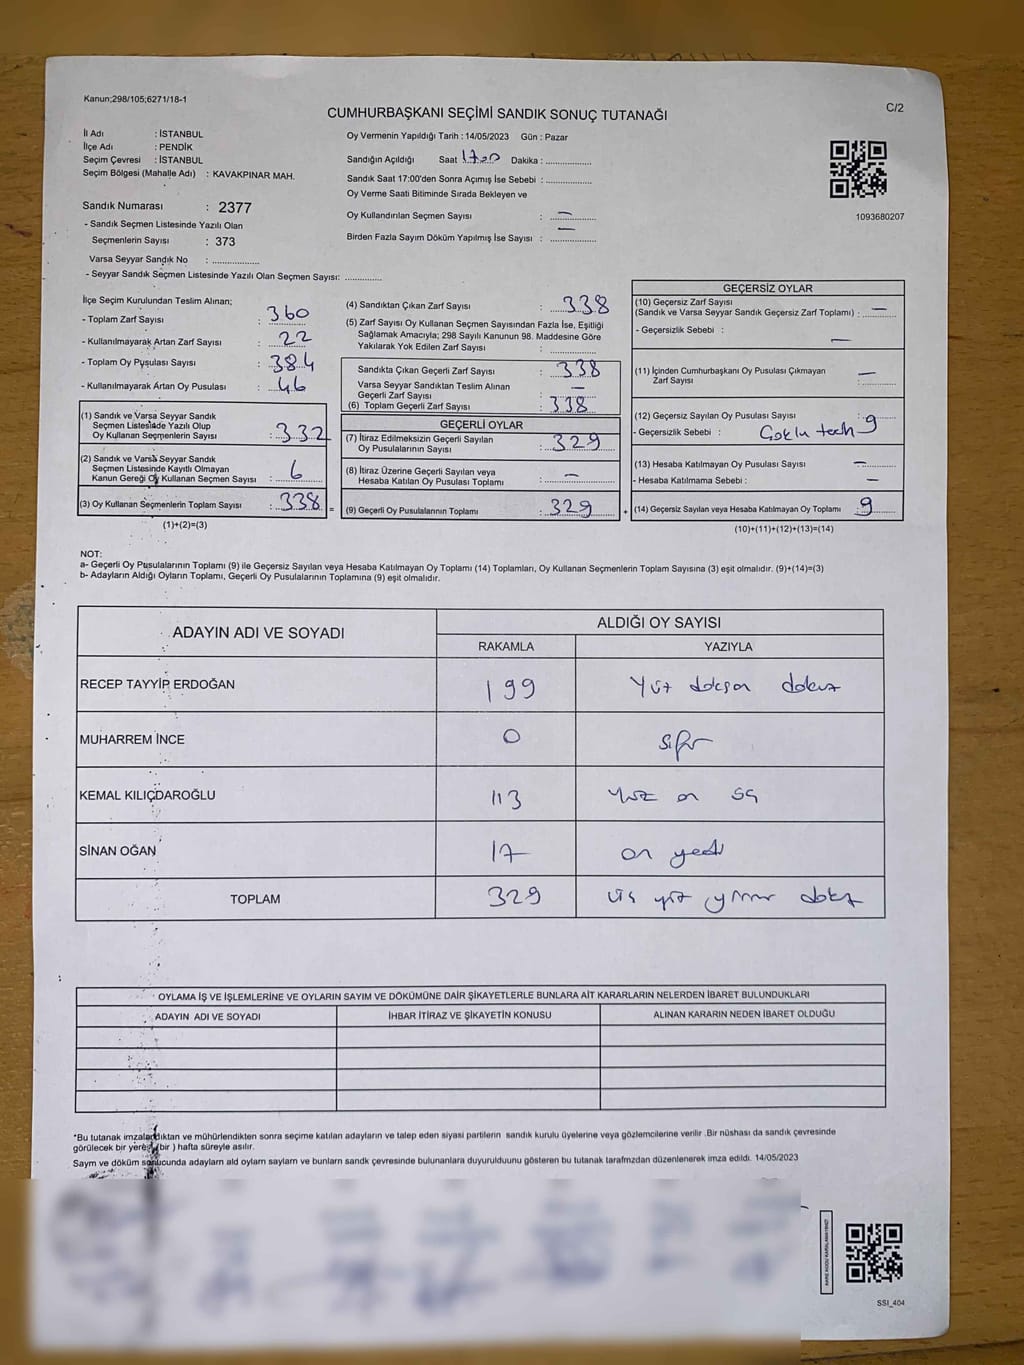 Kanun;298/105;6271/18-1
C/2
CUMHURBAŞKANI SEÇİMİ SANDIK SONUÇ TUTANAĞI
İl Adı : İSTANBUL
İlçe Adı : PENDİK
Seçim Çevresi : İSTANBUL
Seçim Bölgesi (Mahalle Adı) : KAVAKPINAR MAH.
Sandık Numarası : 2377
- Sandık Seçmen Listesinde Yazılı Olan
Seçmenlerin Sayısı : 373
Varsa Seyyar Sandık No : ..................
- Seyyar Sandık Seçmen Listesinde Yazılı Olan Seçmen Sayısı: ..............
Oy Vermenin Yapıldığı Tarih : 14/05/2023 Gün : Pazar
Sandığın Açıldığı Saat 1700 Dakika : ..................
Sandık Saat 17:00'den Sonra Açımış İse Sebebi : ..................
Oy Verme Saati Bitiminde Sırada Bekleyen ve
Oy Kullandırılan Seçmen Sayısı : —
Birden Fazla Sayım Döküm Yapılmış İse Sayısı : —
1093680207
İlçe Seçim Kurulundan Teslim Alınan;
- Toplam Zarf Sayısı : 360
- Kullanılmayarak Artan Zarf Sayısı : 22
- Toplam Oy Pusulası Sayısı : 384
- Kullanılmayarak Artan Oy Pusulası : 46
(1) Sandık ve Varsa Seyyar Sandık
Seçmen Listesinde Yazılı Olup
Oy Kullanan Seçmenlerin Sayısı : 332
(2) Sandık ve Varsa Seyyar Sandık
Seçmen Listesinde Kayıtlı Olmayan
Kanun Gereği Oy Kullanan Seçmen Sayısı : 6
(3) Oy Kullanan Seçmenlerin Toplam Sayısı : 338 =
(1)+(2)=(3)
(4) Sandıktan Çıkan Zarf Sayısı : 338
(5) Zarf Sayısı Oy Kullanan Seçmen Sayısından Fazla İse, Eşitliği
Sağlamak Amacıyla; 298 Sayılı Kanunun 98. Maddesine Göre
Yakılarak Yok Edilen Zarf Sayısı : ..................
Sandıkta Çıkan Geçerli Zarf Sayısı : 338
Varsa Seyyar Sandıktan Teslim Alınan
Geçerli Zarf Sayısı : —
(6) Toplam Geçerli Zarf Sayısı : 338
GEÇERLİ OYLAR
(7) İtiraz Edilmeksizin Geçerli Sayılan
Oy Pusulasının Sayısı : 329
(8) İtiraz Üzerine Geçerli Sayılan veya
Hesaba Katılan Oy Pusulası Toplamı : —
(9) Geçerli Oy Pusulalarının Toplamı : 329 +
GEÇERSİZ OYLAR
(10) Geçersiz Zarf Sayısı
(Sandık ve Varsa Seyyar Sandık Geçersiz Zarf Toplamı) : —
- Geçersizlik Sebebi : —
(11) İçinden Cumhurbaşkanı Oy Pusulası Çıkmayan
Zarf Sayısı : —
(12) Geçersiz Sayılan Oy Pusulası Sayısı : 9
- Geçersizlik Sebebi : Çoklu tech
(13) Hesaba Katılmayan Oy Pusulası Sayısı : —
- Hesaba Katılmama Sebebi : —
(14) Geçersiz Sayılan veya Hesaba Katılmayan Oy Toplamı : 9
(10)+(11)+(12)+(13)=(14)
NOT:
a- Geçerli Oy Pusulalarının Toplamı (9) ile Geçersiz Sayılan veya Hesaba Katılmayan Oy Toplamı (14) Toplamları, Oy Kullanan Seçmenlerin Toplam Sayısına (3) eşit olmalıdır. (9)+(14)=(3)
b- Adayların Aldığı Oyların Toplamı, Geçerli Oy Pusulalarının Toplamına (9) eşit olmalıdır.
ADAYIN ADI VE SOYADI
ALDIĞI OY SAYISI
RAKAMLA YAZIYLA
RECEP TAYYİP ERDOĞAN 199 Yüz doksan dokuz
MUHARREM İNCE 0 sıfır
KEMAL KILIÇDAROĞLU 113 Yüz on üç
SİNAN OĞAN 17 on yedi
TOPLAM 329 üç yüz yirmi dokuz
OYLAMA İŞ VE İŞLEMLERİNE VE OYLARIN SAYIM VE DÖKÜMÜNE DAİR ŞİKAYETLERLE BUNLARA AİT KARARLARIN NELERDEN İBARET BULUNDUKLARI
ADAYIN ADI VE SOYADI İHBAR İTİRAZ VE ŞİKAYETİN KONUSU ALINAN KARARIN NEDEN İBARET OLDUĞU
*Bu tutanak imzalandıktan ve mühürlendikten sonra seçime katılan adayların ve talep eden siyasi partilerin sandık kurulu üyelerine veya gözlemcilerine verilir .Bir nüshası da sandık çevresinde
görülecek bir yere (bir ) hafta süreyle asılır.
Sayım ve döküm sonucunda adayların ald oyların saylarn ve bunlarn sandk çevresinde bulunanlara duyurulduunu gösteren bu tutanak tarafmzdan düzenlenerek imza edildi. 14/05/2023
SSI_404